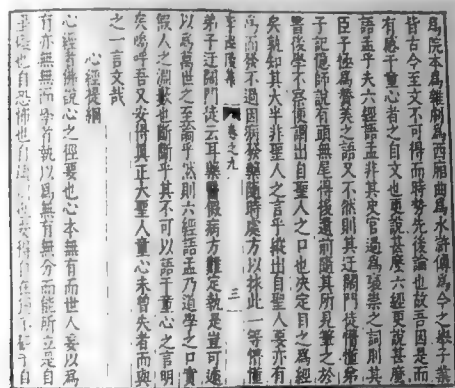 為院本為雜劇為西廂曲為水滸傳為今之舉子業
皆古今至文不可得而時勢先後論也故吾因是而
有感于童心者之自文也更說甚麼六經更說甚麼
語孟乎夫六經語孟非其史官過為褒崇之詞則其
臣子極為贊美之語又不然則其迂闊門徒懵懂弟
子記憶師說有頭無尾得後遺前隨其所見筆之於
書後學不察便謂出自聖人之口也決定目之為經
矣孰知其大半非聖人之言乎縱出自聖人要亦有
為而發不過因病發藥隨時處方以救此一等懵懂
李溫陵集 卷之九 三
弟子迂闊門徒云耳藥醫假病方難定執是豈可遽
以為萬世之至論乎然則六經語孟乃道學之口實
假人之淵藪也斷斷乎其不可以語于童心之言明
矣嗚呼吾又安得真正大聖人童心未曾失者而與
之一言文哉
心經提綱
心經者佛說心之徑要也心本無有而世人妄以為
有亦無無而學者執以為無有無分而能所立是自
罣礙也自恐怖也自顛倒也安得自在獨不觀于自